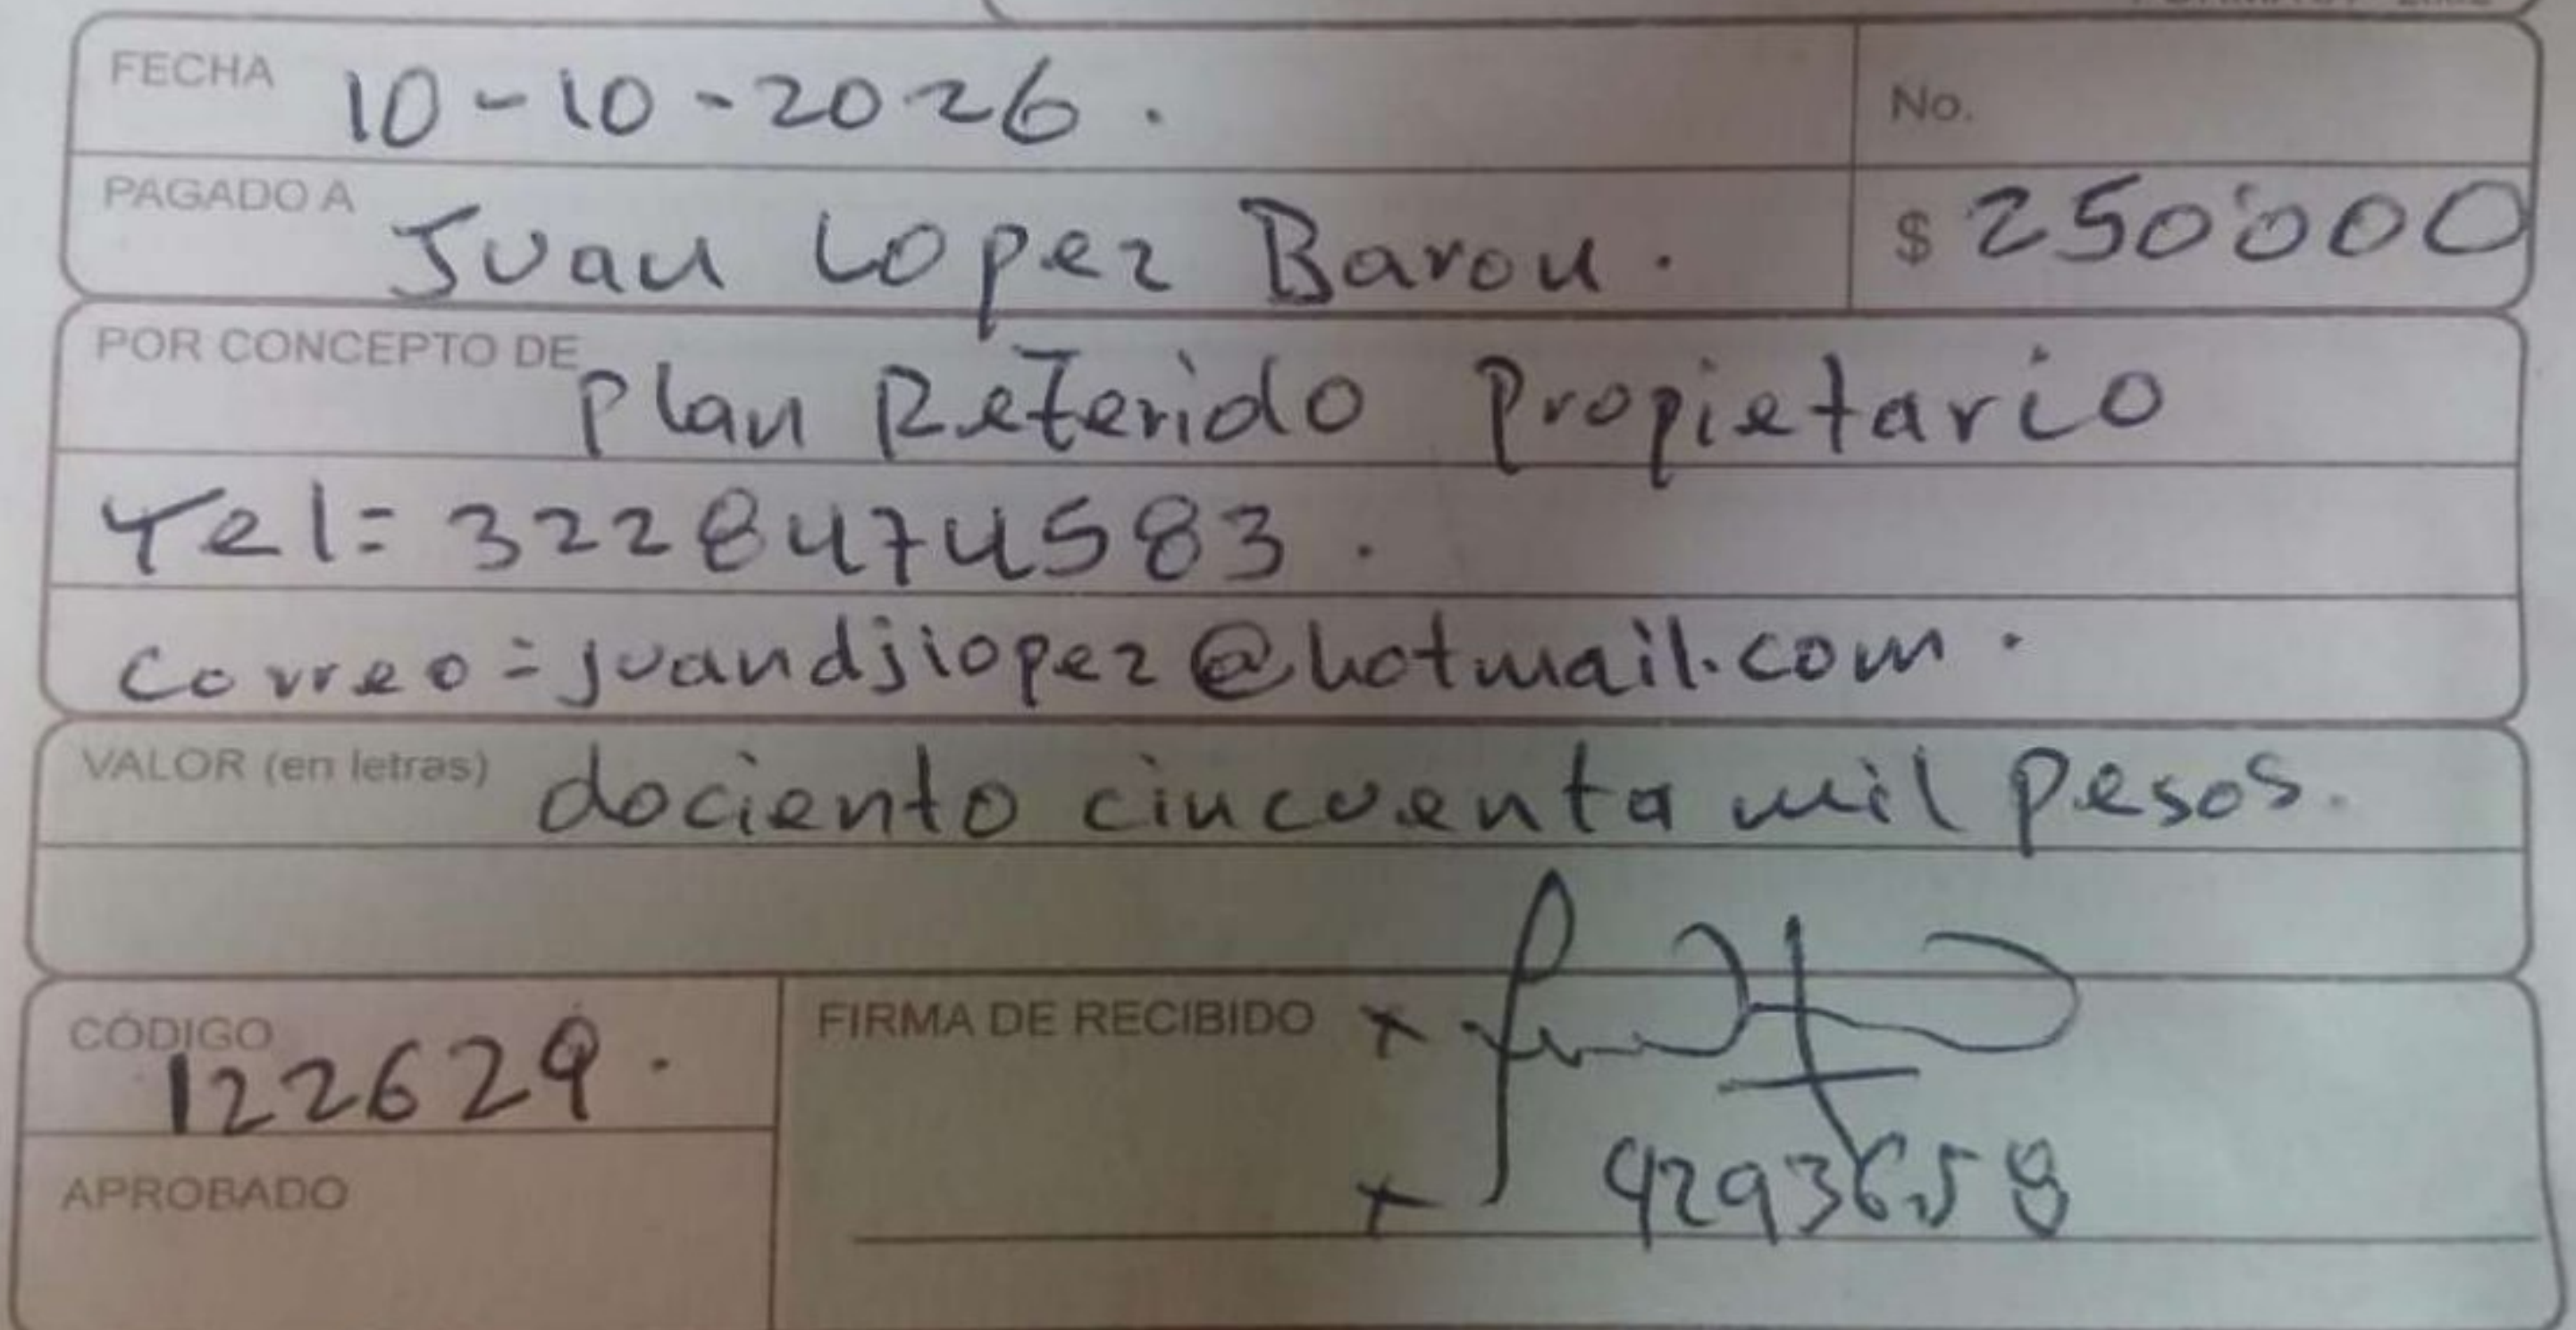 FECHA 10-10-2026.
No.
PAGADO A Juan Lopez Baron.
$ 250'000
POR CONCEPTO DE Plan Referido Propietario
Tel= 3228474583.
Correo = juandjiopez@hotmail.com.
VALOR (en letras) dociento cincuenta mil pesos.
CÓDIGO 122629.
FIRMA DE RECIBIDO x
APROBADO
x 4293658